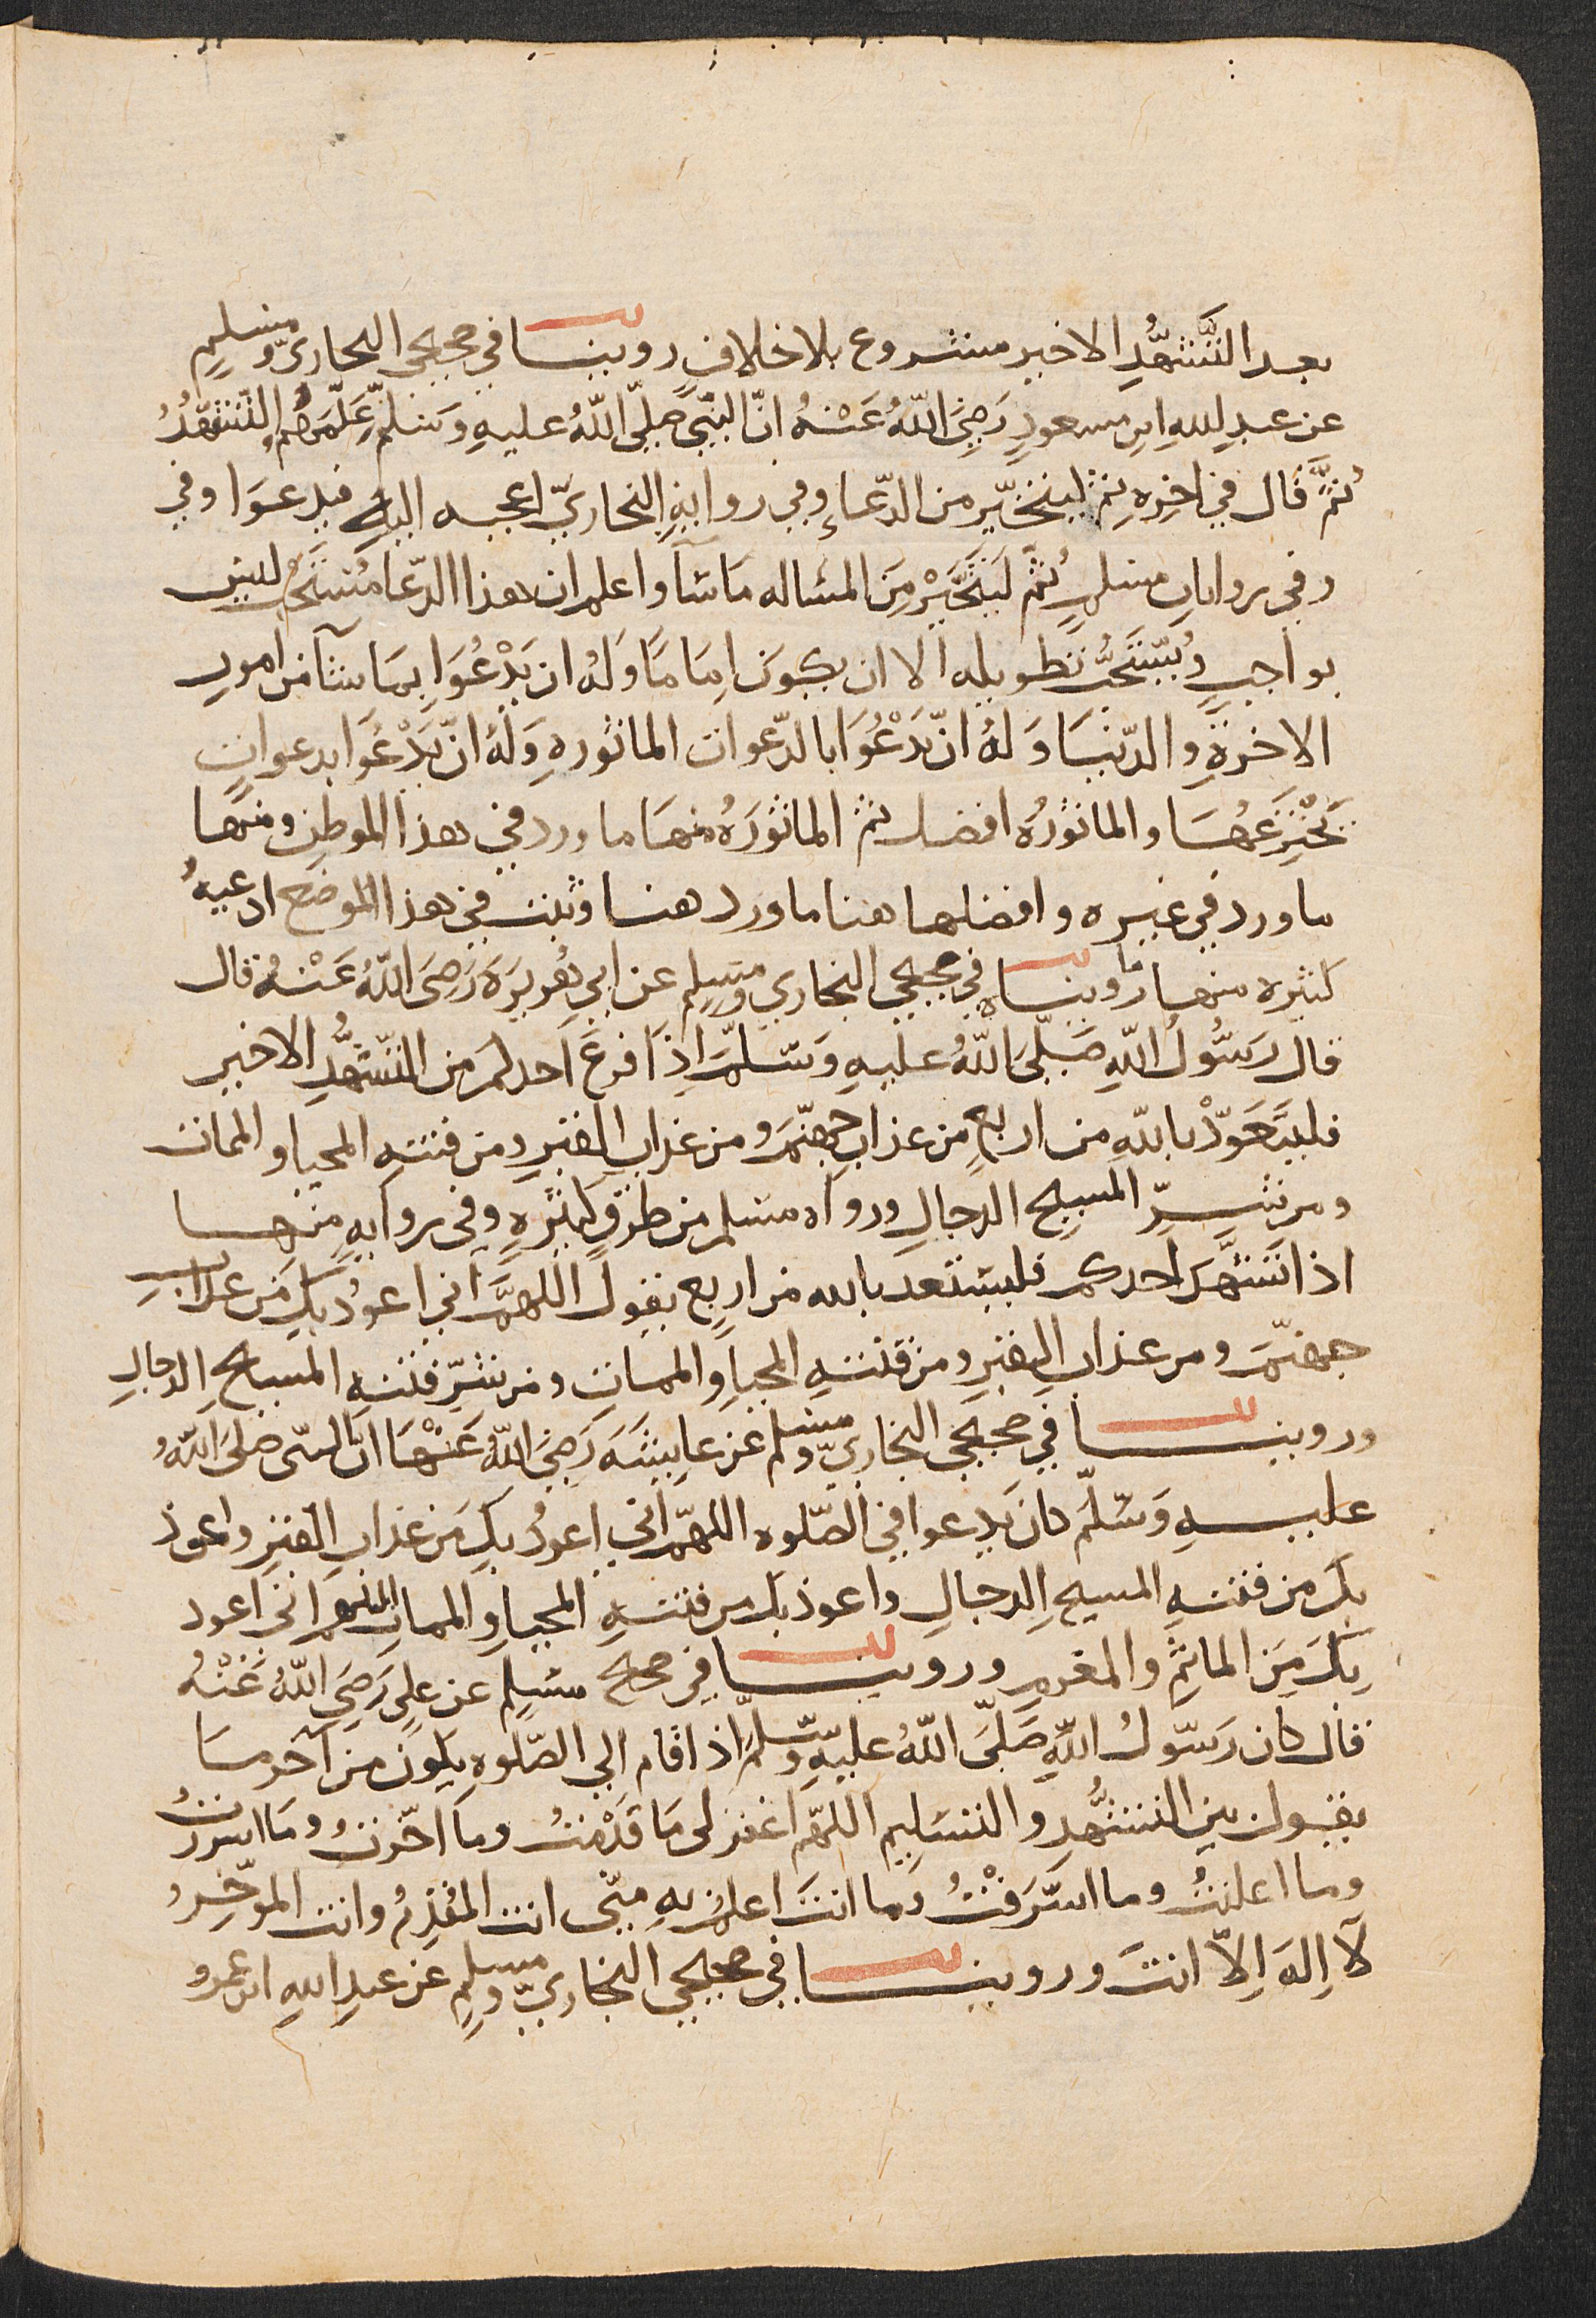 بعد التَّشَهُّدِ الاخير مشروع بلا خلافٍ روينا في صحيحي البخاريّ ومسلمٍ
عن عبدِ اللهِ ابنِ مسعودٍ رَضِيَ اللهُ عَنْهُ انّ النبّي صلّى اللهُ عليهِ وَسَلّمَ عَلّمَهُمُ التّشَهُّدُ
ثمَّ قال في اخِرِهِ ثم ليتخيّر من الدّعاءِ وفي روايةِ البخاريّ اعجبه اليهِ فيدعوا وفي
وفي رواياتِ مسلمٍ ثُمّ ليَتَخَيَّرْ مِنَ المساله مَا شآ واعلم ان هذا الدّعا مُسْتَحَبٌّ ليسَ
بواجبٍ ويُسْتَحَبُّ تطويله الا ان يكونَ اِمَامًا وَلهُ ان يَدْعُوَا بِمَا شآ من امورِ
الاخرةِ والدّنيَا وَلهُ انْ يَدْعُوَا بالدّعوات الماثورهِ وَلهُ انْ يَدْعُوَا بدعواتٍ
يَخْتَرِعُهَا والماثورُه افضل ثم الماثورَهُ منها ما ورد في هذا الموطِن ومنها
ما ورد في غيره وافضلها هنا ما ورد هنا وثبت في هذا الموضع ادعيهُ
كثيره منها ما روينا في صحيحي البخاري ومسلم عن ابي هُريرَة رَضِىَ اللهُ عَنْهُ قال
قال رسُولُ اللهِ صَلّىَ اللهُ عليهِ وَسَلّمَ اذَا فرغَ احدكم من التّشَهُّدِ الاخيرِ
فليتَعَوّذْ باللهِ من اربعٍ من عذابِ جهنّمَ ومن عذابِ القبرِ ومن فتنهِ المحيا والممات
ومن شرِّ المسيحِ الدجالِ ورواه مسلم من طرُقٍ كثيرهٍ وفى روايهٍ منها
اذا تشهّدَ احدكم فليستعذ بالله من اربع يقول اللهمَّ اني اعوذُ بكَ من عذابِ
جهنّمَ ومن عذابِ القبرِ ومن فتنهِ المحياِ والمماتِ ومن شرّ فتنه المسيح الدجالِ
وروينا في صحيحي البخاريّ ومسلم عن عايشَهَ رَضِيَ اللهُ عَنْهَا انّ النبّى صَلى اللهُ
عليهِ وَسَلّمَ كان يَدعوا في الصّلوه اللهمّ اني اعوذُ بكَ من عذابِ القبرِ واعوذ
بكَ من فتنهِ المسيحِ الدجالِ واعوذ بك من فتنهِ المحياِ والمماتِ اللهم اني اعوذ
بِكَ مِنَ الماثمِ والمغرمِ وروينا في صحيح مسلمٍ عن علىٍ رَضِيَ اللهُ عَنْهُ
قال كان رَسُولُ اللهِ صَلّىَ اللهُ عليهِ وَسّلمَ اذا قام الي الصّلوهِ يكون من آخر ما
يقول بين التشهُّدِ والتسليم اللهمّ اغفر لى مَا قدّمتُ ومَا اخّرتُ ومَا اسررتُ
وما اعلنتُ وما اسْرَفْتُ وَما انتَ اعلمُ بهِ منّى انت المُقدِّمُ وانت الموّخِرُ
لآ اِلهَ اِلّا انتَ وروينا في صحيحي البخاريّ ومسلمٍ عن عبدِ اللهِ ابن عمرو